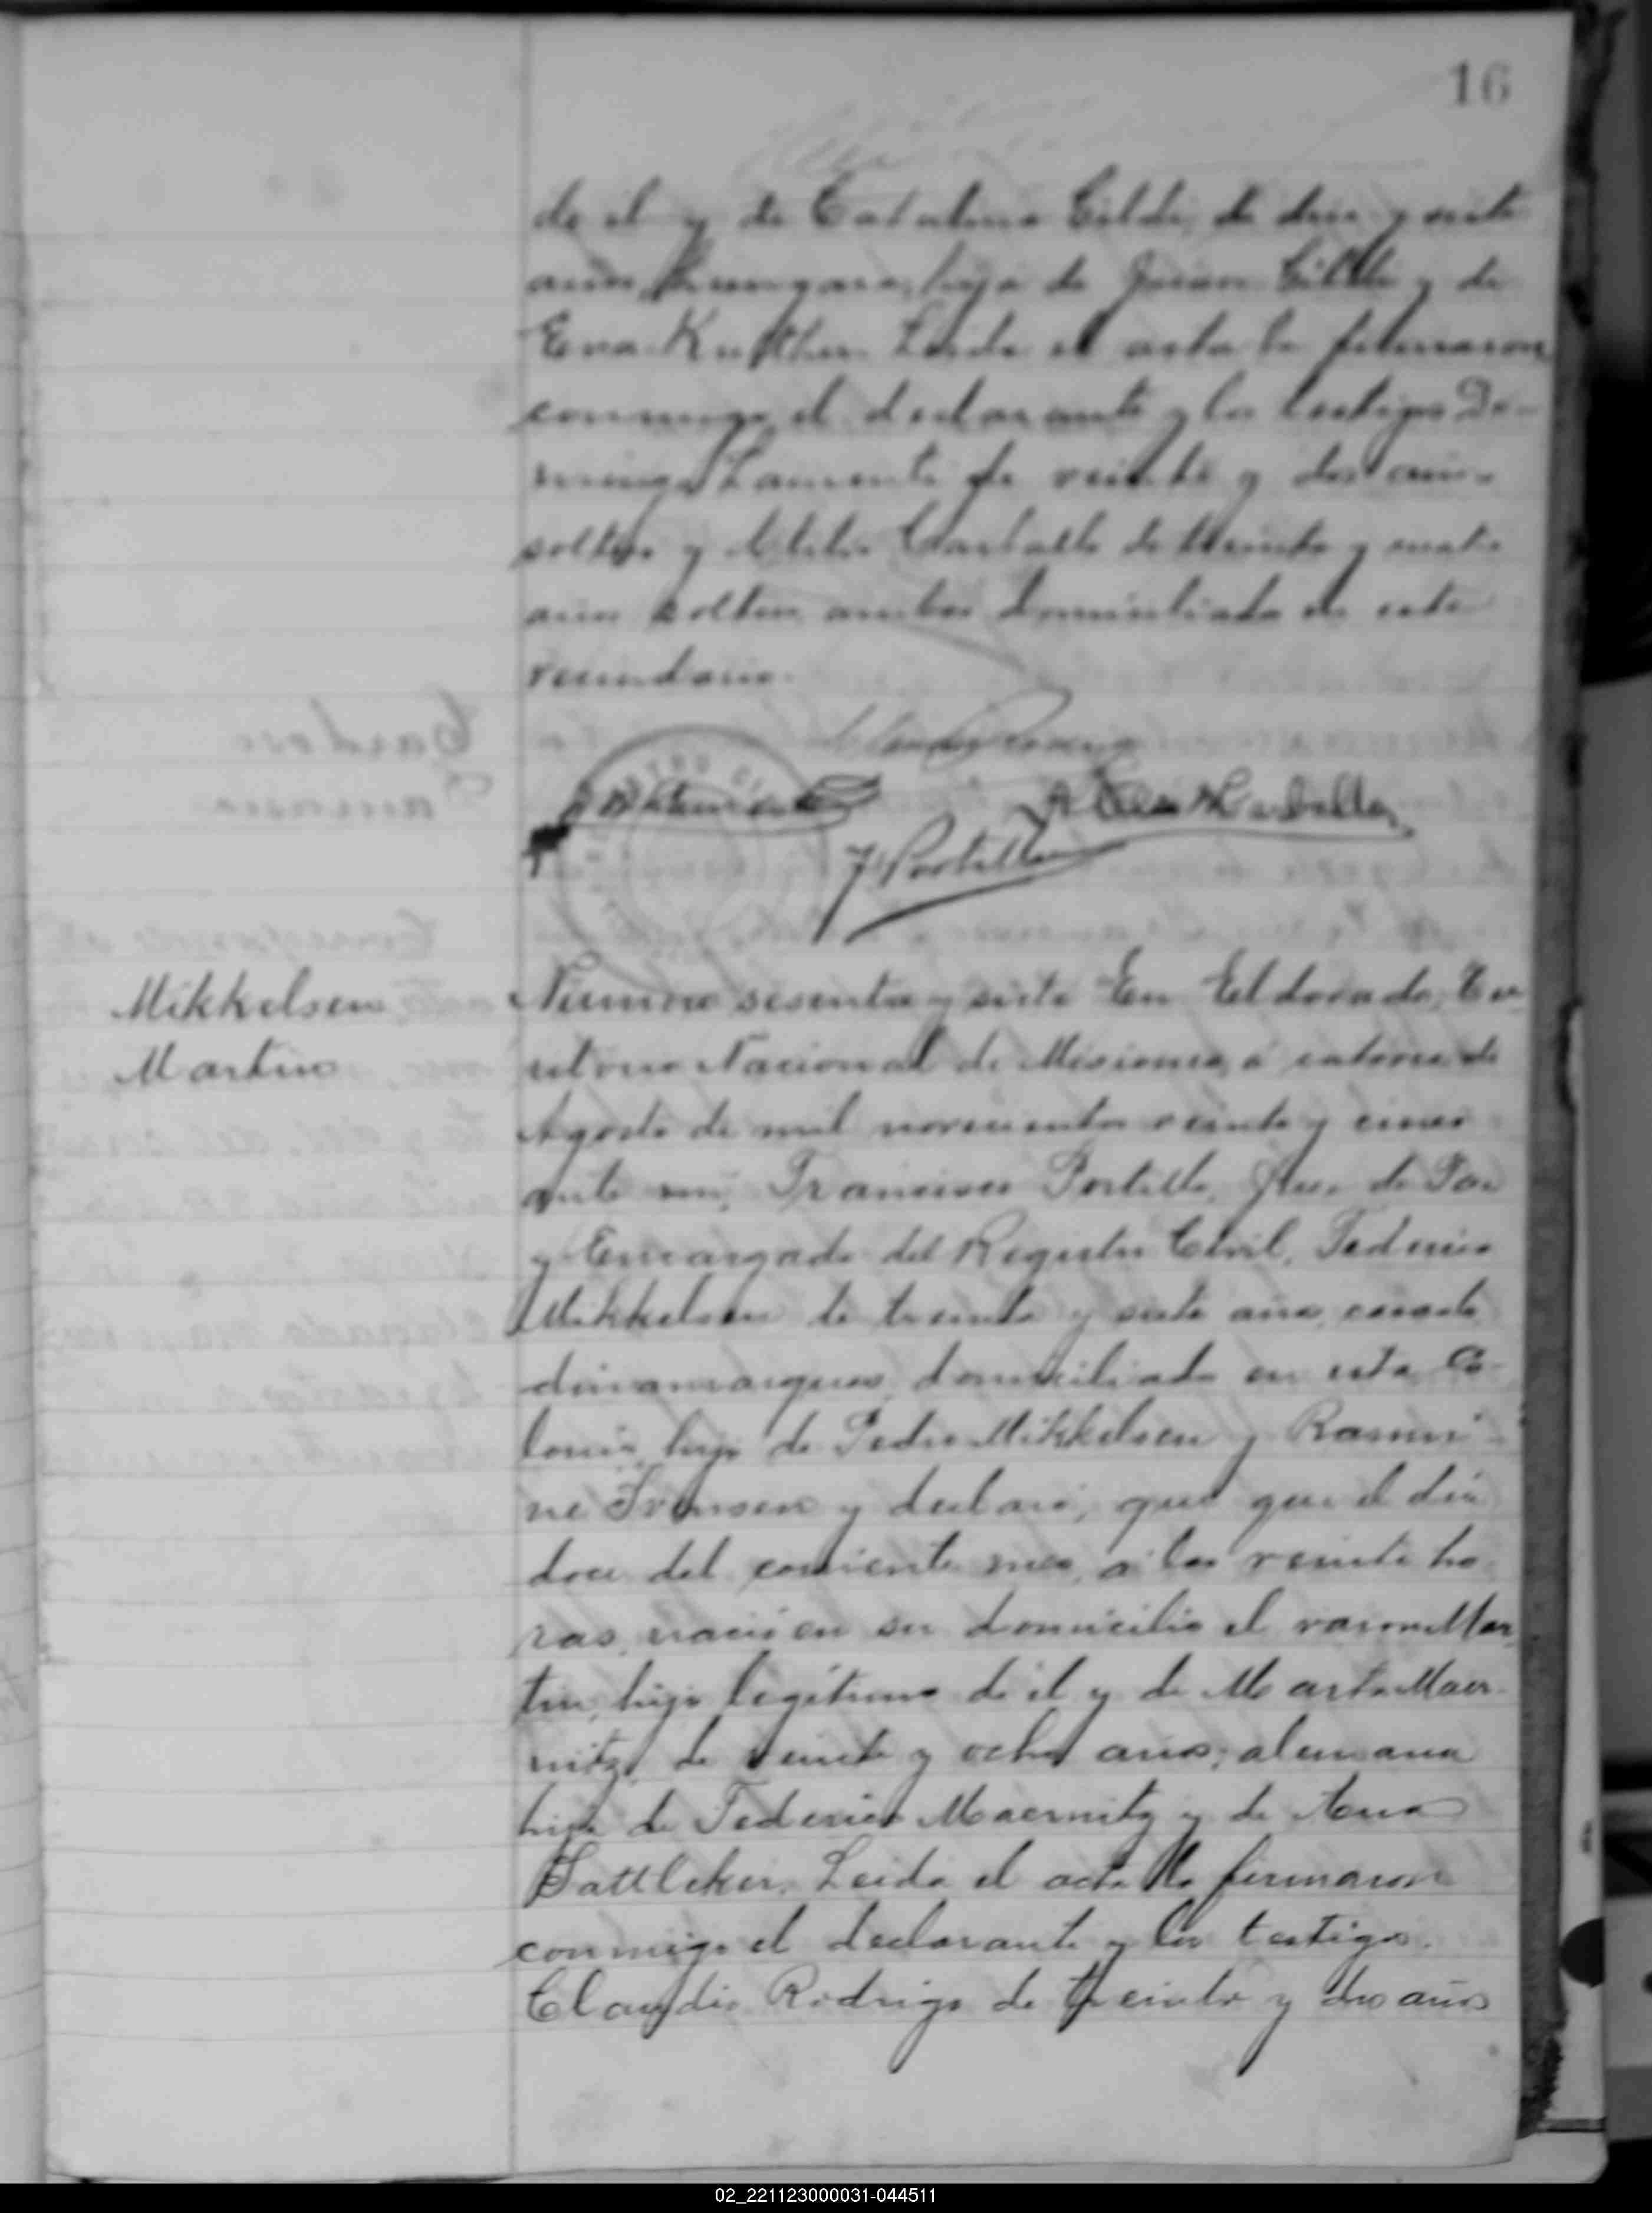 16
de él y de Catalina Cilde, de diez y siete
años, hungara, hija de Juan Cilde y de
Eva Leida el acta la firmaron
conmigo el declarante y los testigos Do-
mingo de veinte y dos años
soltero y Atilio Carballo de treinta y cuatro
años soltero, ambos domiciliados en este
vecindario.
F Portillo
Mikkelsen
Martin
Número sesenta y siete En Eldorado, Te-
rritorio Nacional de Misiones, a catorce de
Agosto de mil novecientos veinte y cinco
ante mí, Francisco Portillo, Juez de Paz
y Encargado del Registro Civil, Federico
Mikkelsen de treinta y siete años, casado,
dinamarques, domiciliado en esta Co-
lonia, hijo de Pedro Mikkelsen y Rasmi-
ne y declaró, que que el día
doce del corriente mes, a las veinte ho-
ras, nació en su domicilio el varon Mar-
tin, hijo legítimo de él y de Marta Maer-
nitz, de veinte y ocho años, alemana
hija de Federico Maernitz y de Ana
Sattleker. Leida el acta la firmaron
conmigo el declarante y los testigos.
Claudio Rodrigo de treinta y dos años
02_221123000031-044511